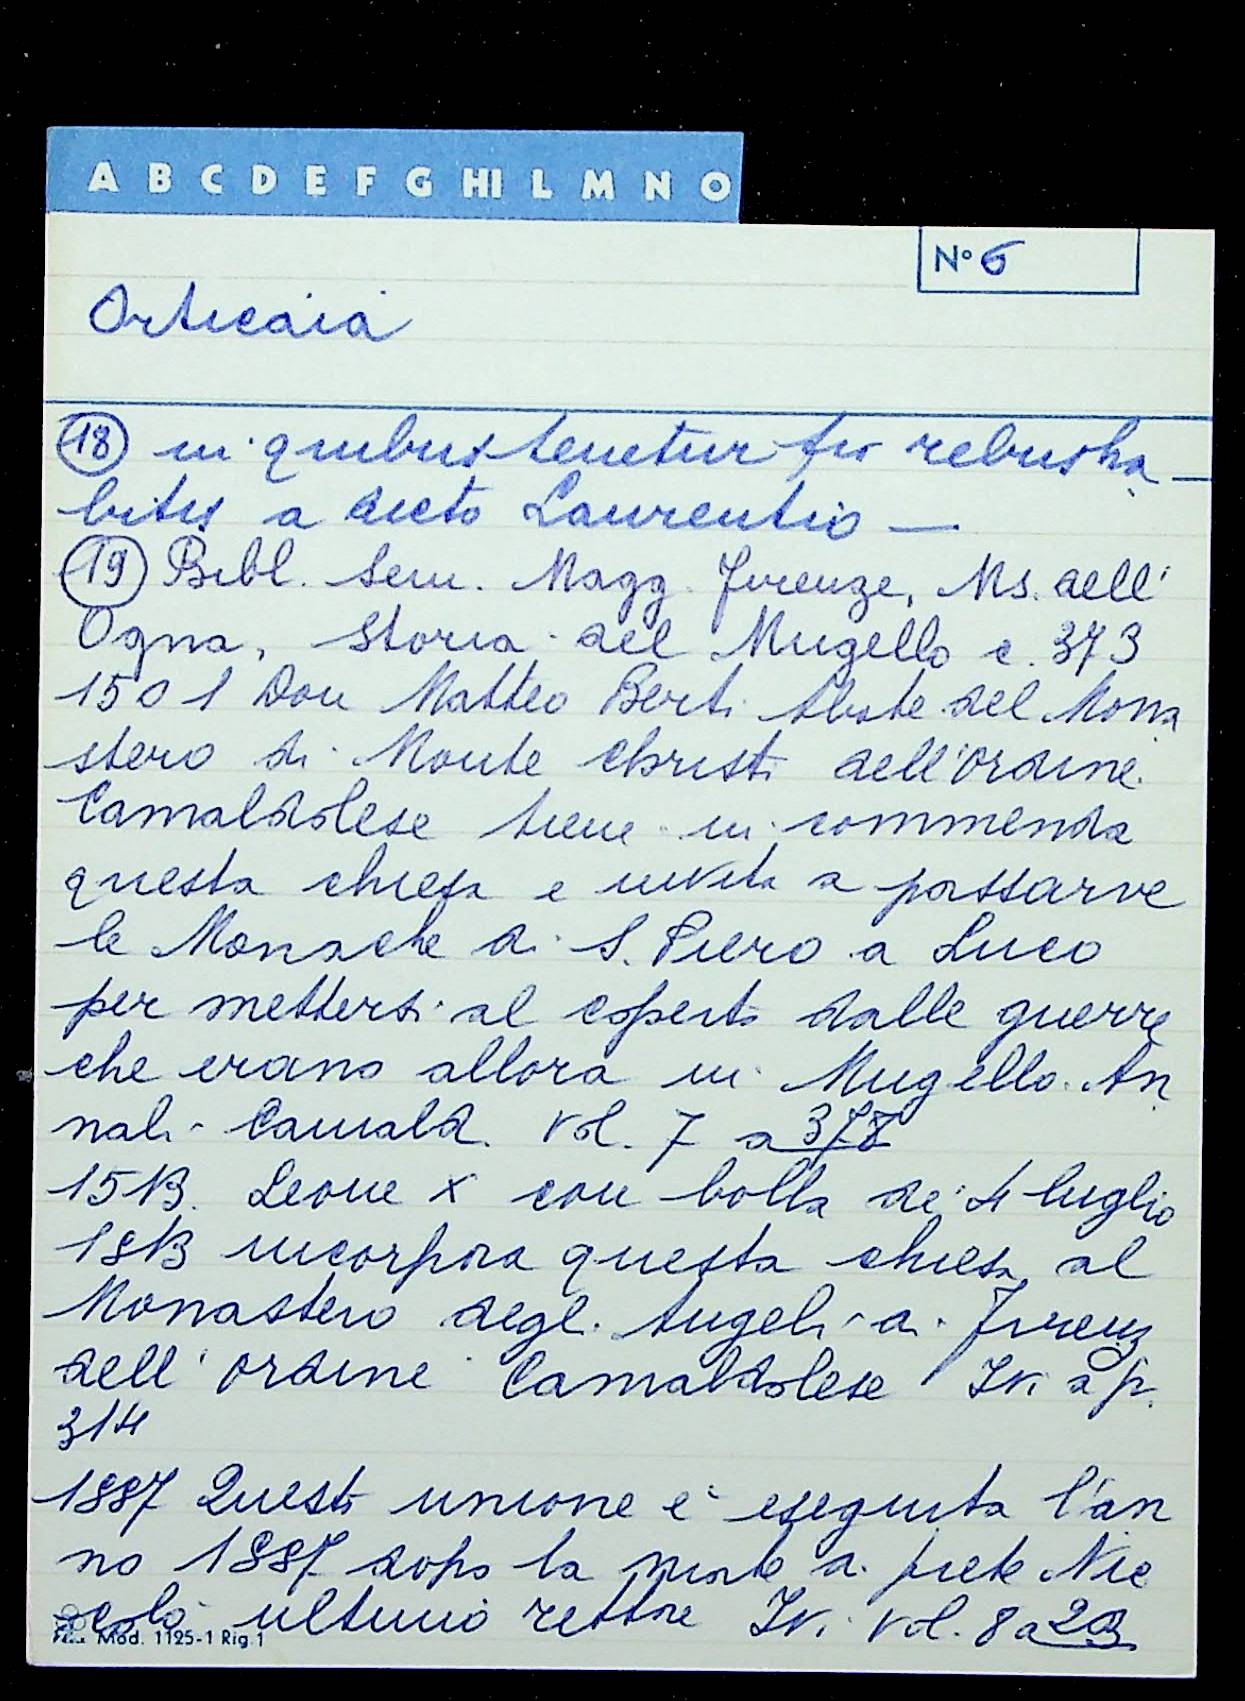 A B C D E F G HI L M N O
N° 6
Orticaia
(18) in quibus tenetur pro rebus ha-
bitis a dicto Laurentio —
(19) Bibl. Sem. Magg. Firenze, Ms. dell'
Ogna, Storia del Mugello c. 373
1501 Don Matteo Berti Abate del Mona
stero di Monte Christi dell'ordine
Camaldolese tiene in commenda
questa chiesa e invita a passarve
le Monache di S. Piero a Luco
per mettersi al coperto dalle guerre
che erano allora in Mugello. An
nali Camald. Vol. 7 a 378
1513. Leone X con bolla de' 4 luglio
1513 incorpora questa chiesa al
Monastero degl. Angeli di Firenz
dell'ordine Camaldolese Ivi a p.
314
1887 Questi unione è eseguita l'an
no 1887 dopo la morte di prete Nic
colò ultimo rettore Ivi Vol. 8 a
Mod. 1125-1 Rig.1